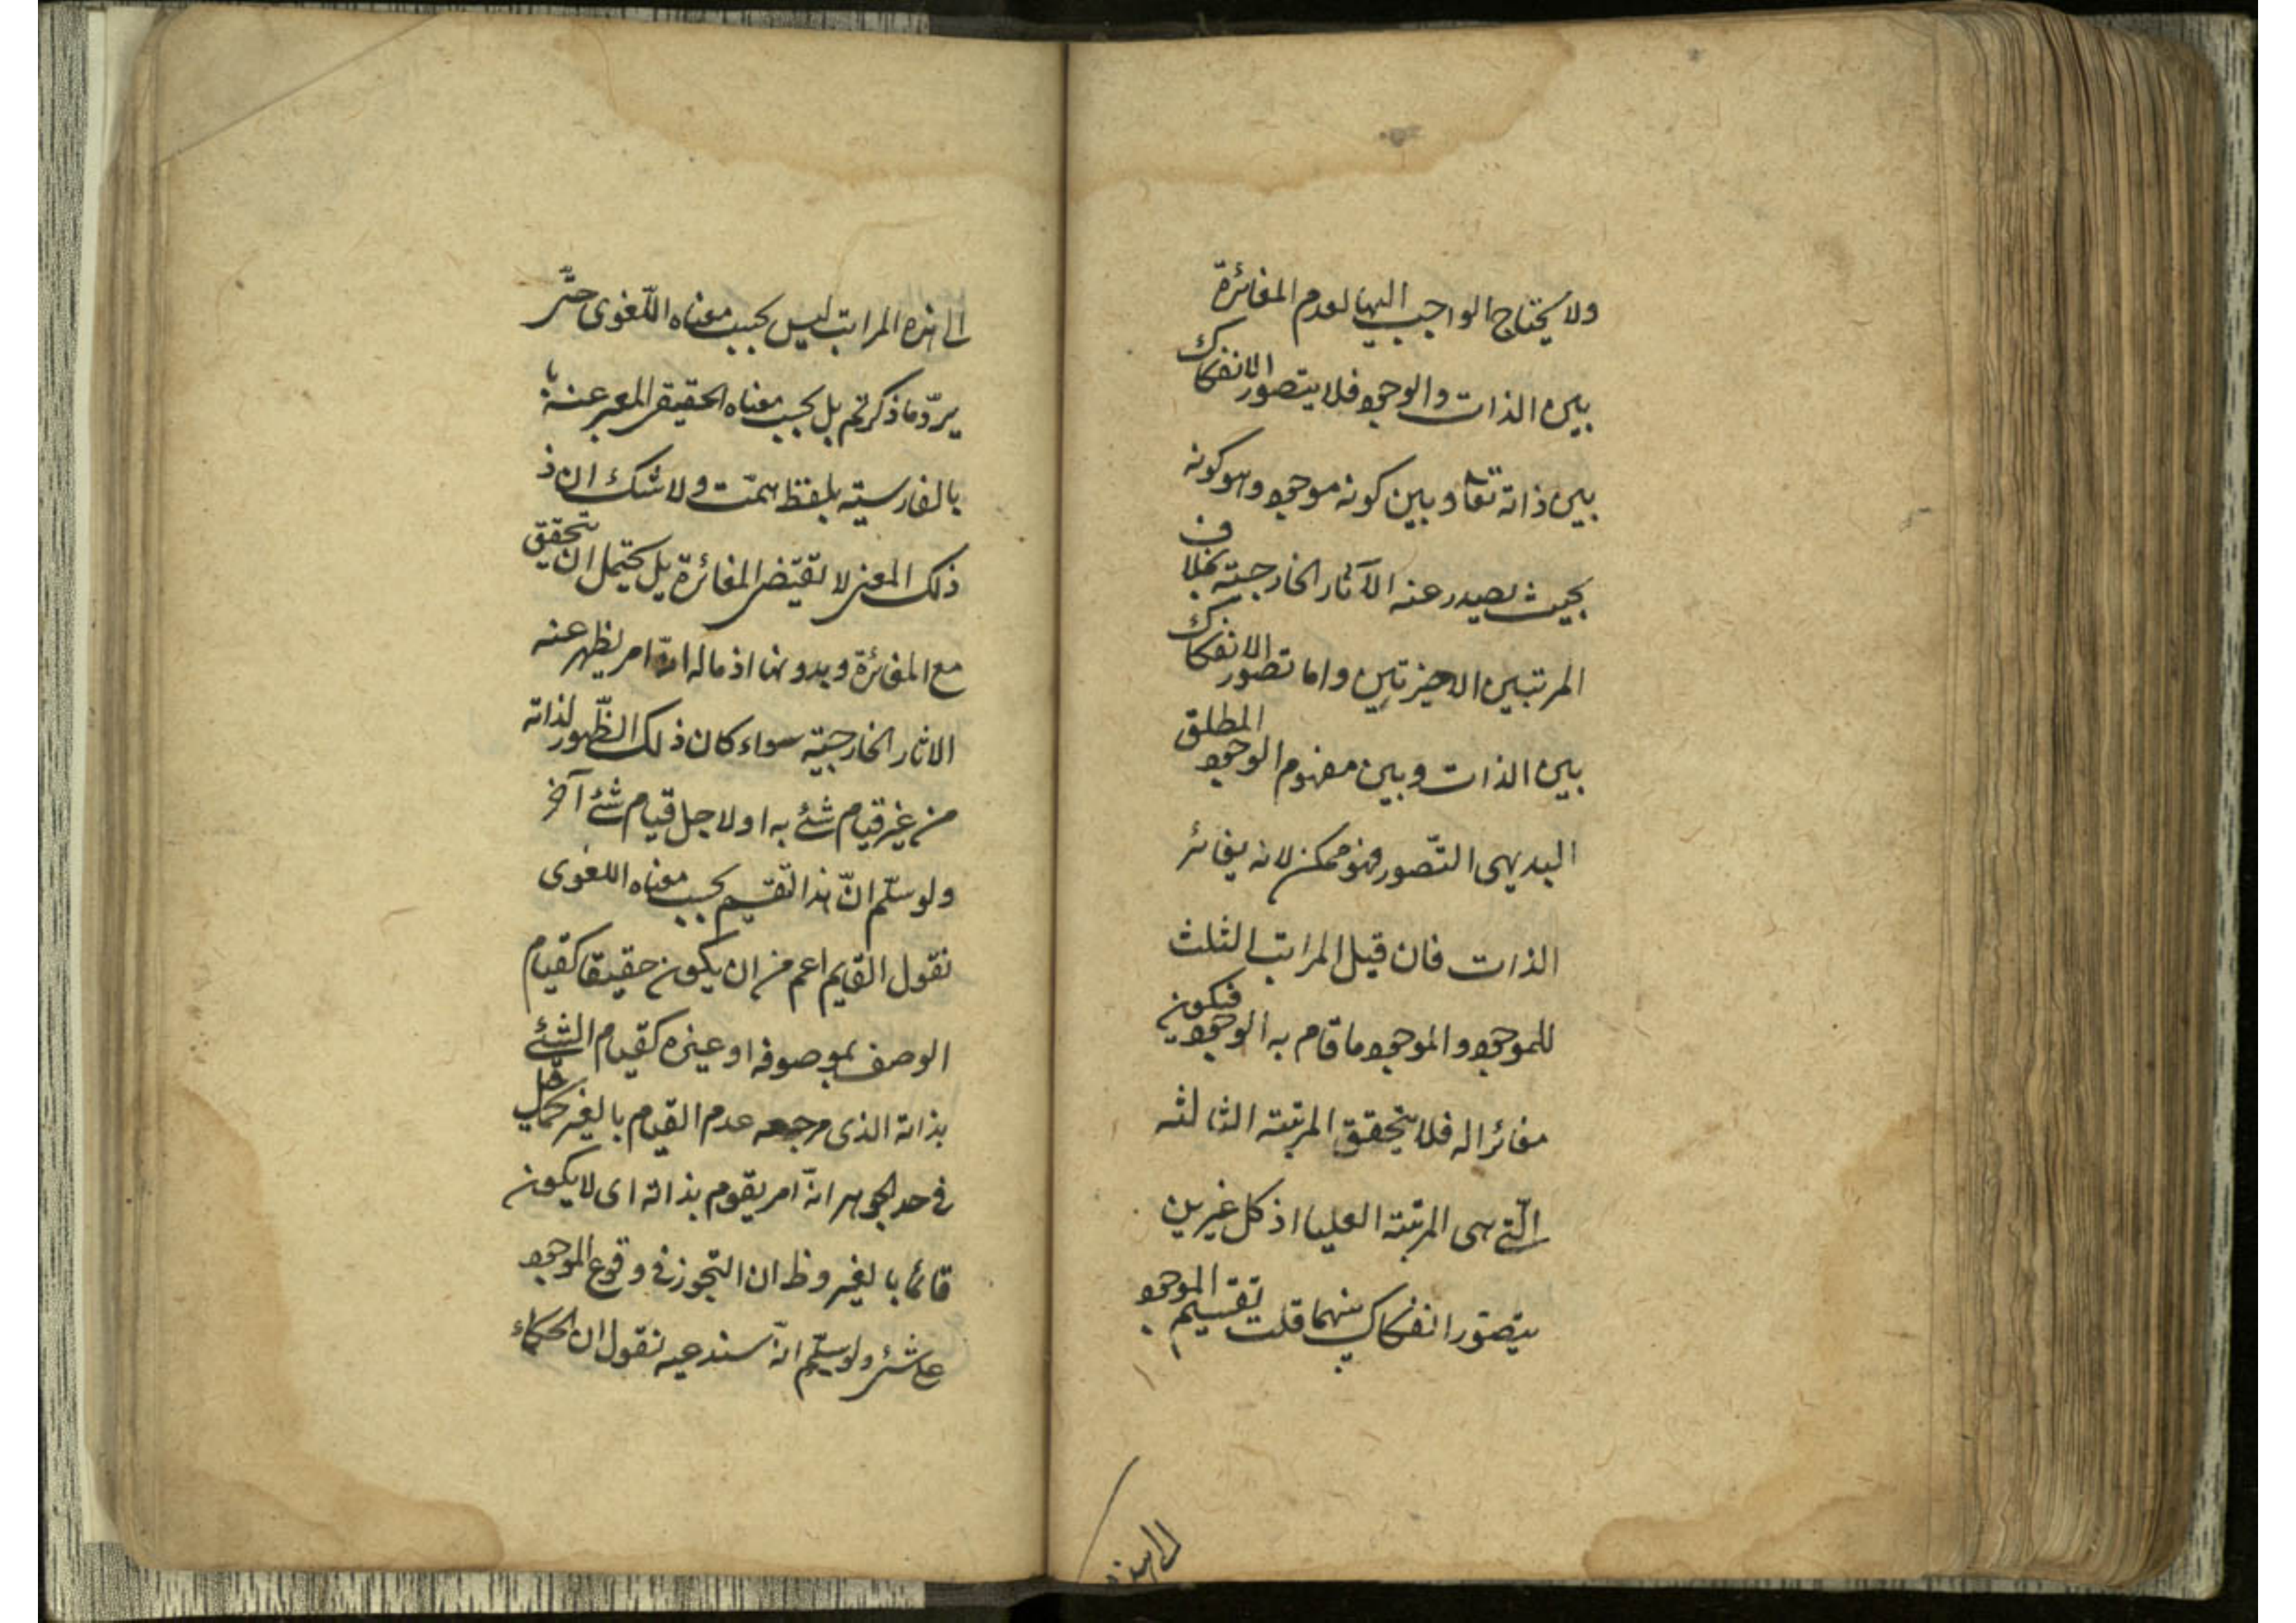 ولا يحتاج الواجب اليها لعدم المغائرة
بين الذات والوجود فلا يتصور الانفكاك
بين ذاته تعا وبين كونه موجود وهو كونه
بحيث يصدر عنه الآثار الخارجية بخلاف
المرتبتين الاخيرتين واما تصور الانفكاك
بين الذات وبين مفهوم الوجود المطلق
البديهى التّصور فهو ممكن لانه يغائر
الذات فان قيل المراتب الثلث
للموجود والموجود ما قام به الوجود فيكون
مغائرا له فلا يتحقق المرتبة الثالثه
الّتے هى المرتبة العليا اذ كل غيرين
يتصوّر انفكاك بينهما قلت تقسيم الموجود
الى هذه
الى هذه المراتب ليس بحسب معناه اللّغوى حتّى
يردّ ما ذكرتم بل بحسب معناه الحقيقى المعبر عنه
بالفارسيّه بلفظ هست ولا شك ان ذ
ذلك المعنى لا يقتضى المغائرة بل يحتمل ان يتحقق
مع المغائرة وبدونها اذ ماله انّه امر يظهر عنه
الاثار الخارجيّة سواء كان ذلك الظّهور لذاته
من غير قيام شئ به او لاجل قيام شئ آخر
ولو سلّم انّ هذا التّقسيم بحسب معناه اللغوى
نقول القيام اعم من ان يكون حقيقا كقيام
الوصف بموصوفه او غيره كقيام الشئ
بذاته الذى مرجعه عدم القيام بالغير كما قيل
فى حد الجوهر انّه امر يقوم بذاته اى لا يكون
قائما بالغير وظ ان التجوز فى وقوع الموجود
على شئ ولو سلّم انّه سندعيه نقول ان الحكماء